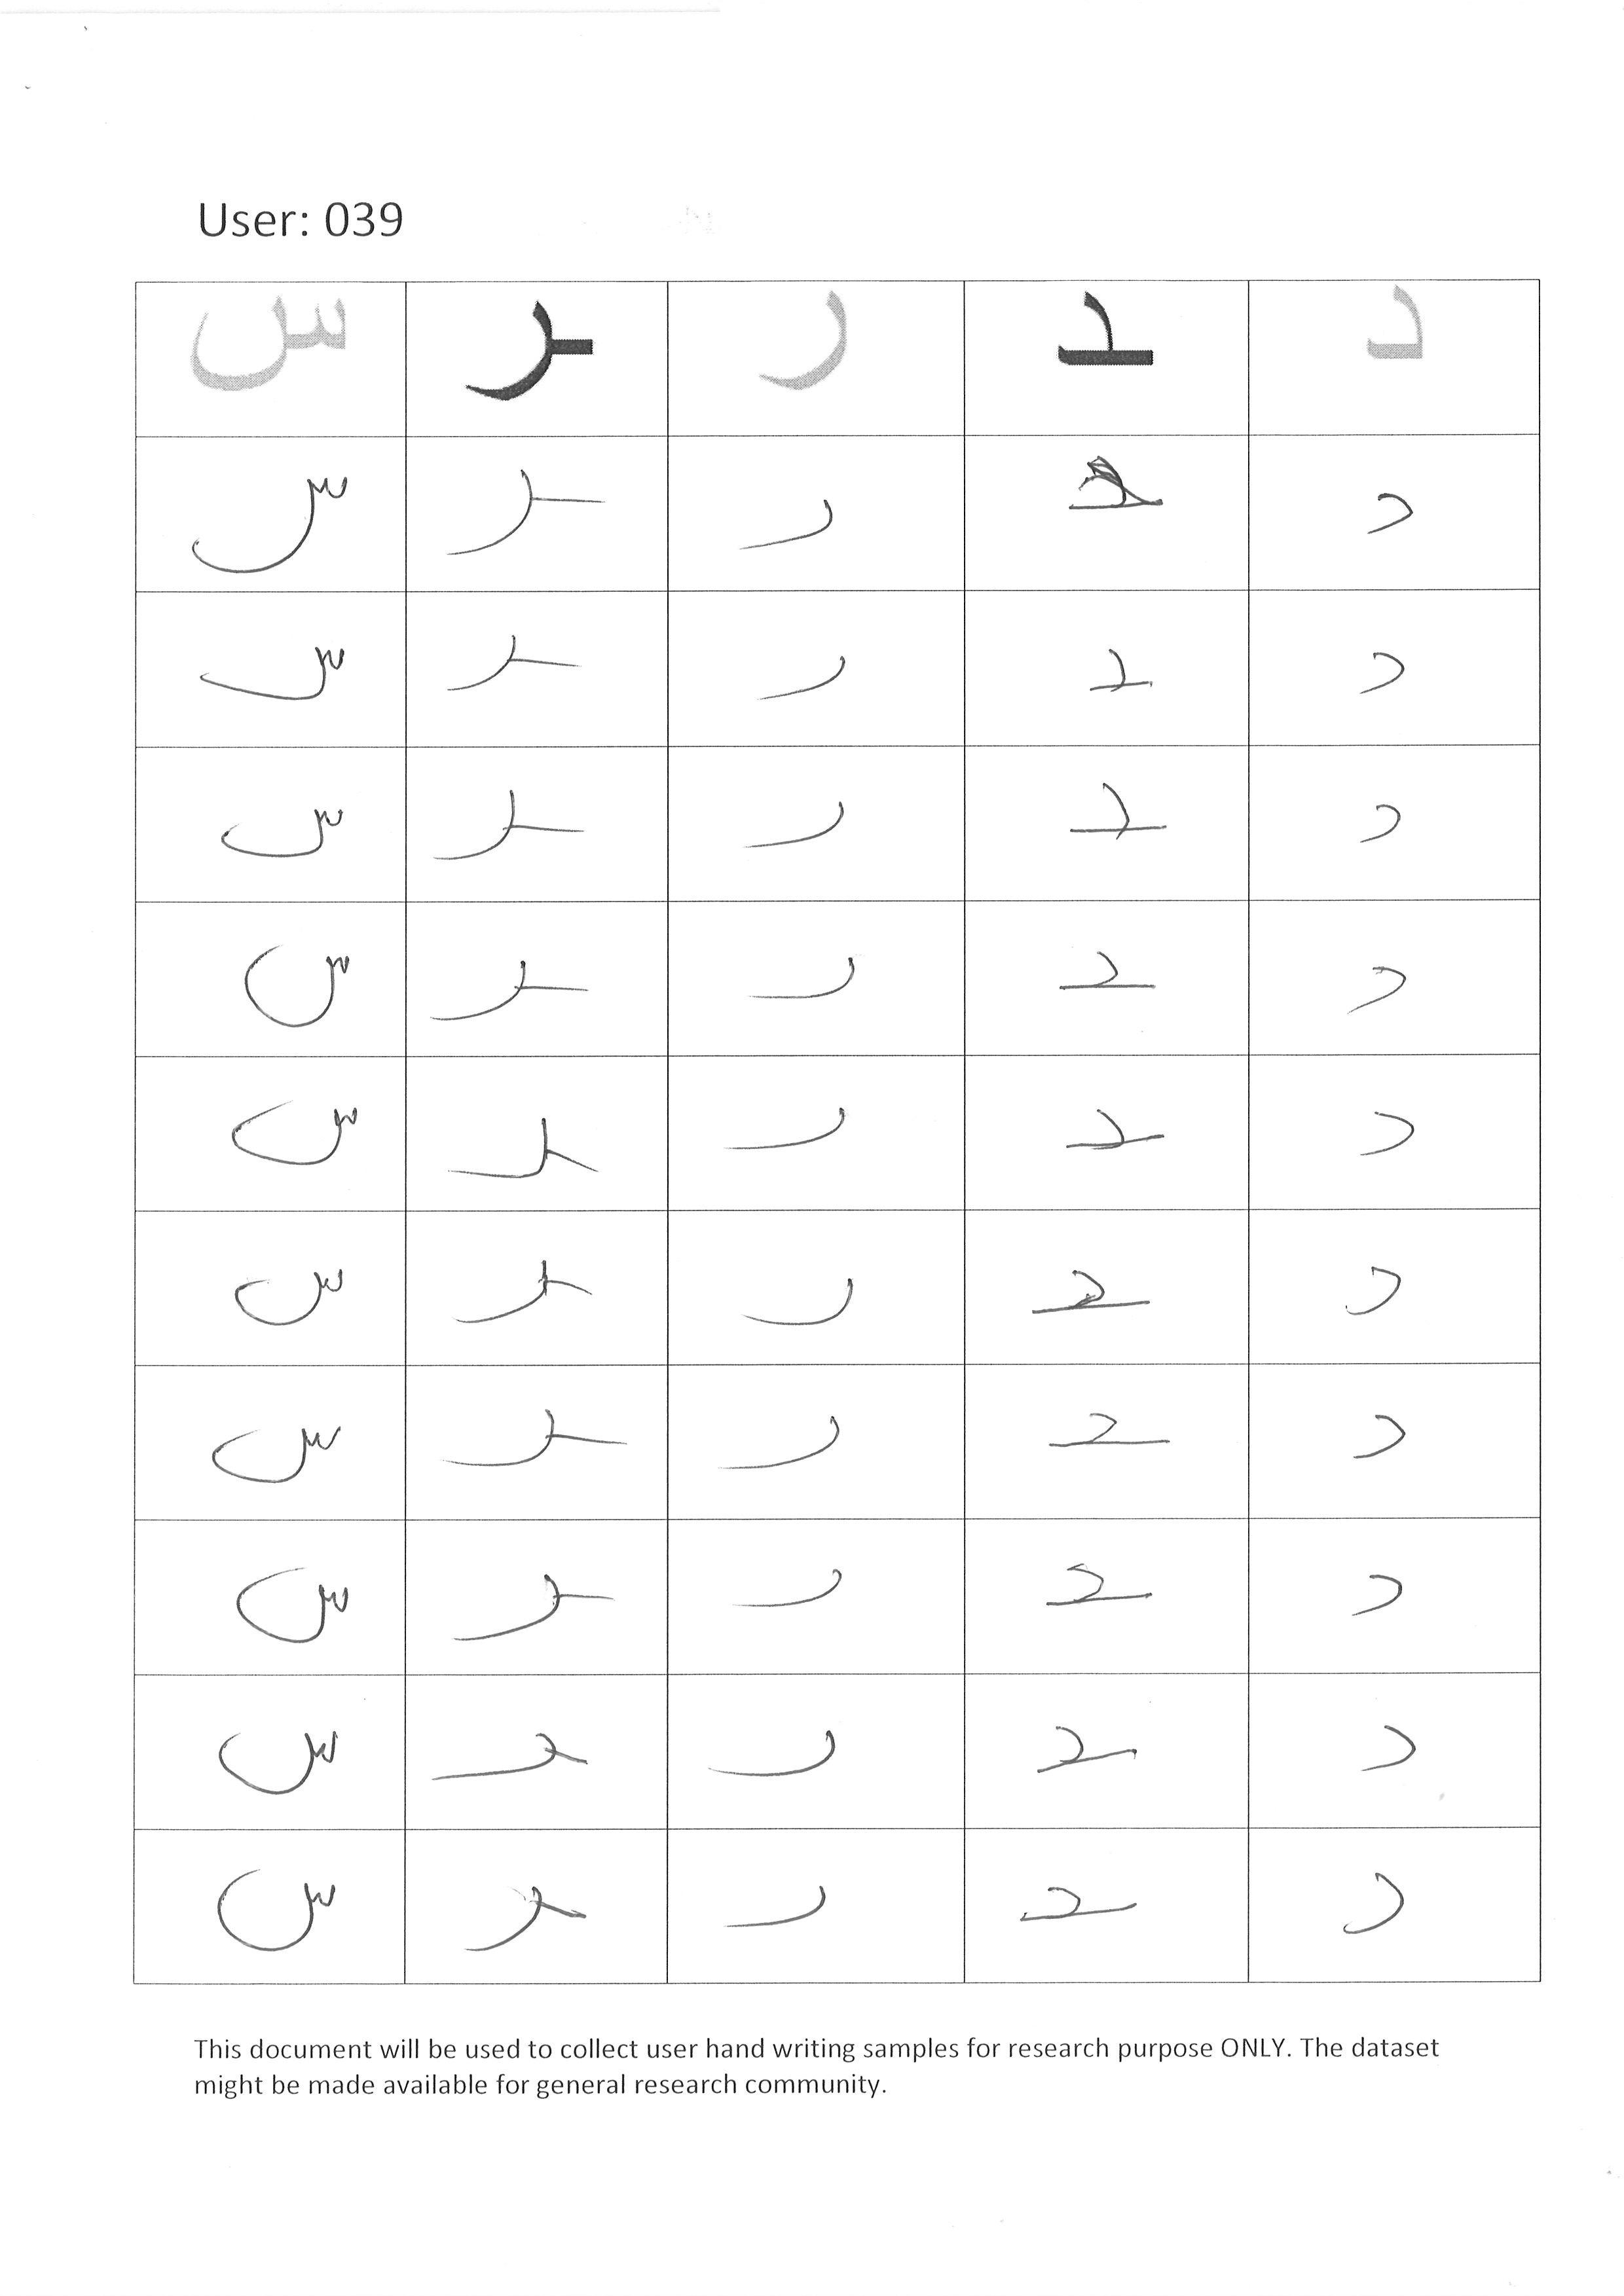 User: 039
س ـر ر ـد د
س ـر ر ـد د
س ـر ر ـد د
س ـر ر ـد د
س ـر ر ـد د
س ـر ر ـد د
س ـر ر ـد د
س ـر ر ـد د
س ـر ر ـد د
س ـر ر ـد د
س ـر ر ـد د
This document will be used to collect user hand writing samples for research purpose ONLY. The dataset
might be made available for general research community.